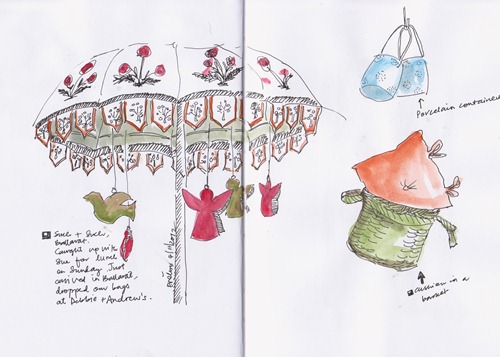 Sue + Sues,
Ballarat.
Caught up with
Sue for lunch
on Sunday. Just
arrived in Ballarat,
dropped our bags
at Debbie + Andrew's.
Porcelain containers
cushion in a
basket